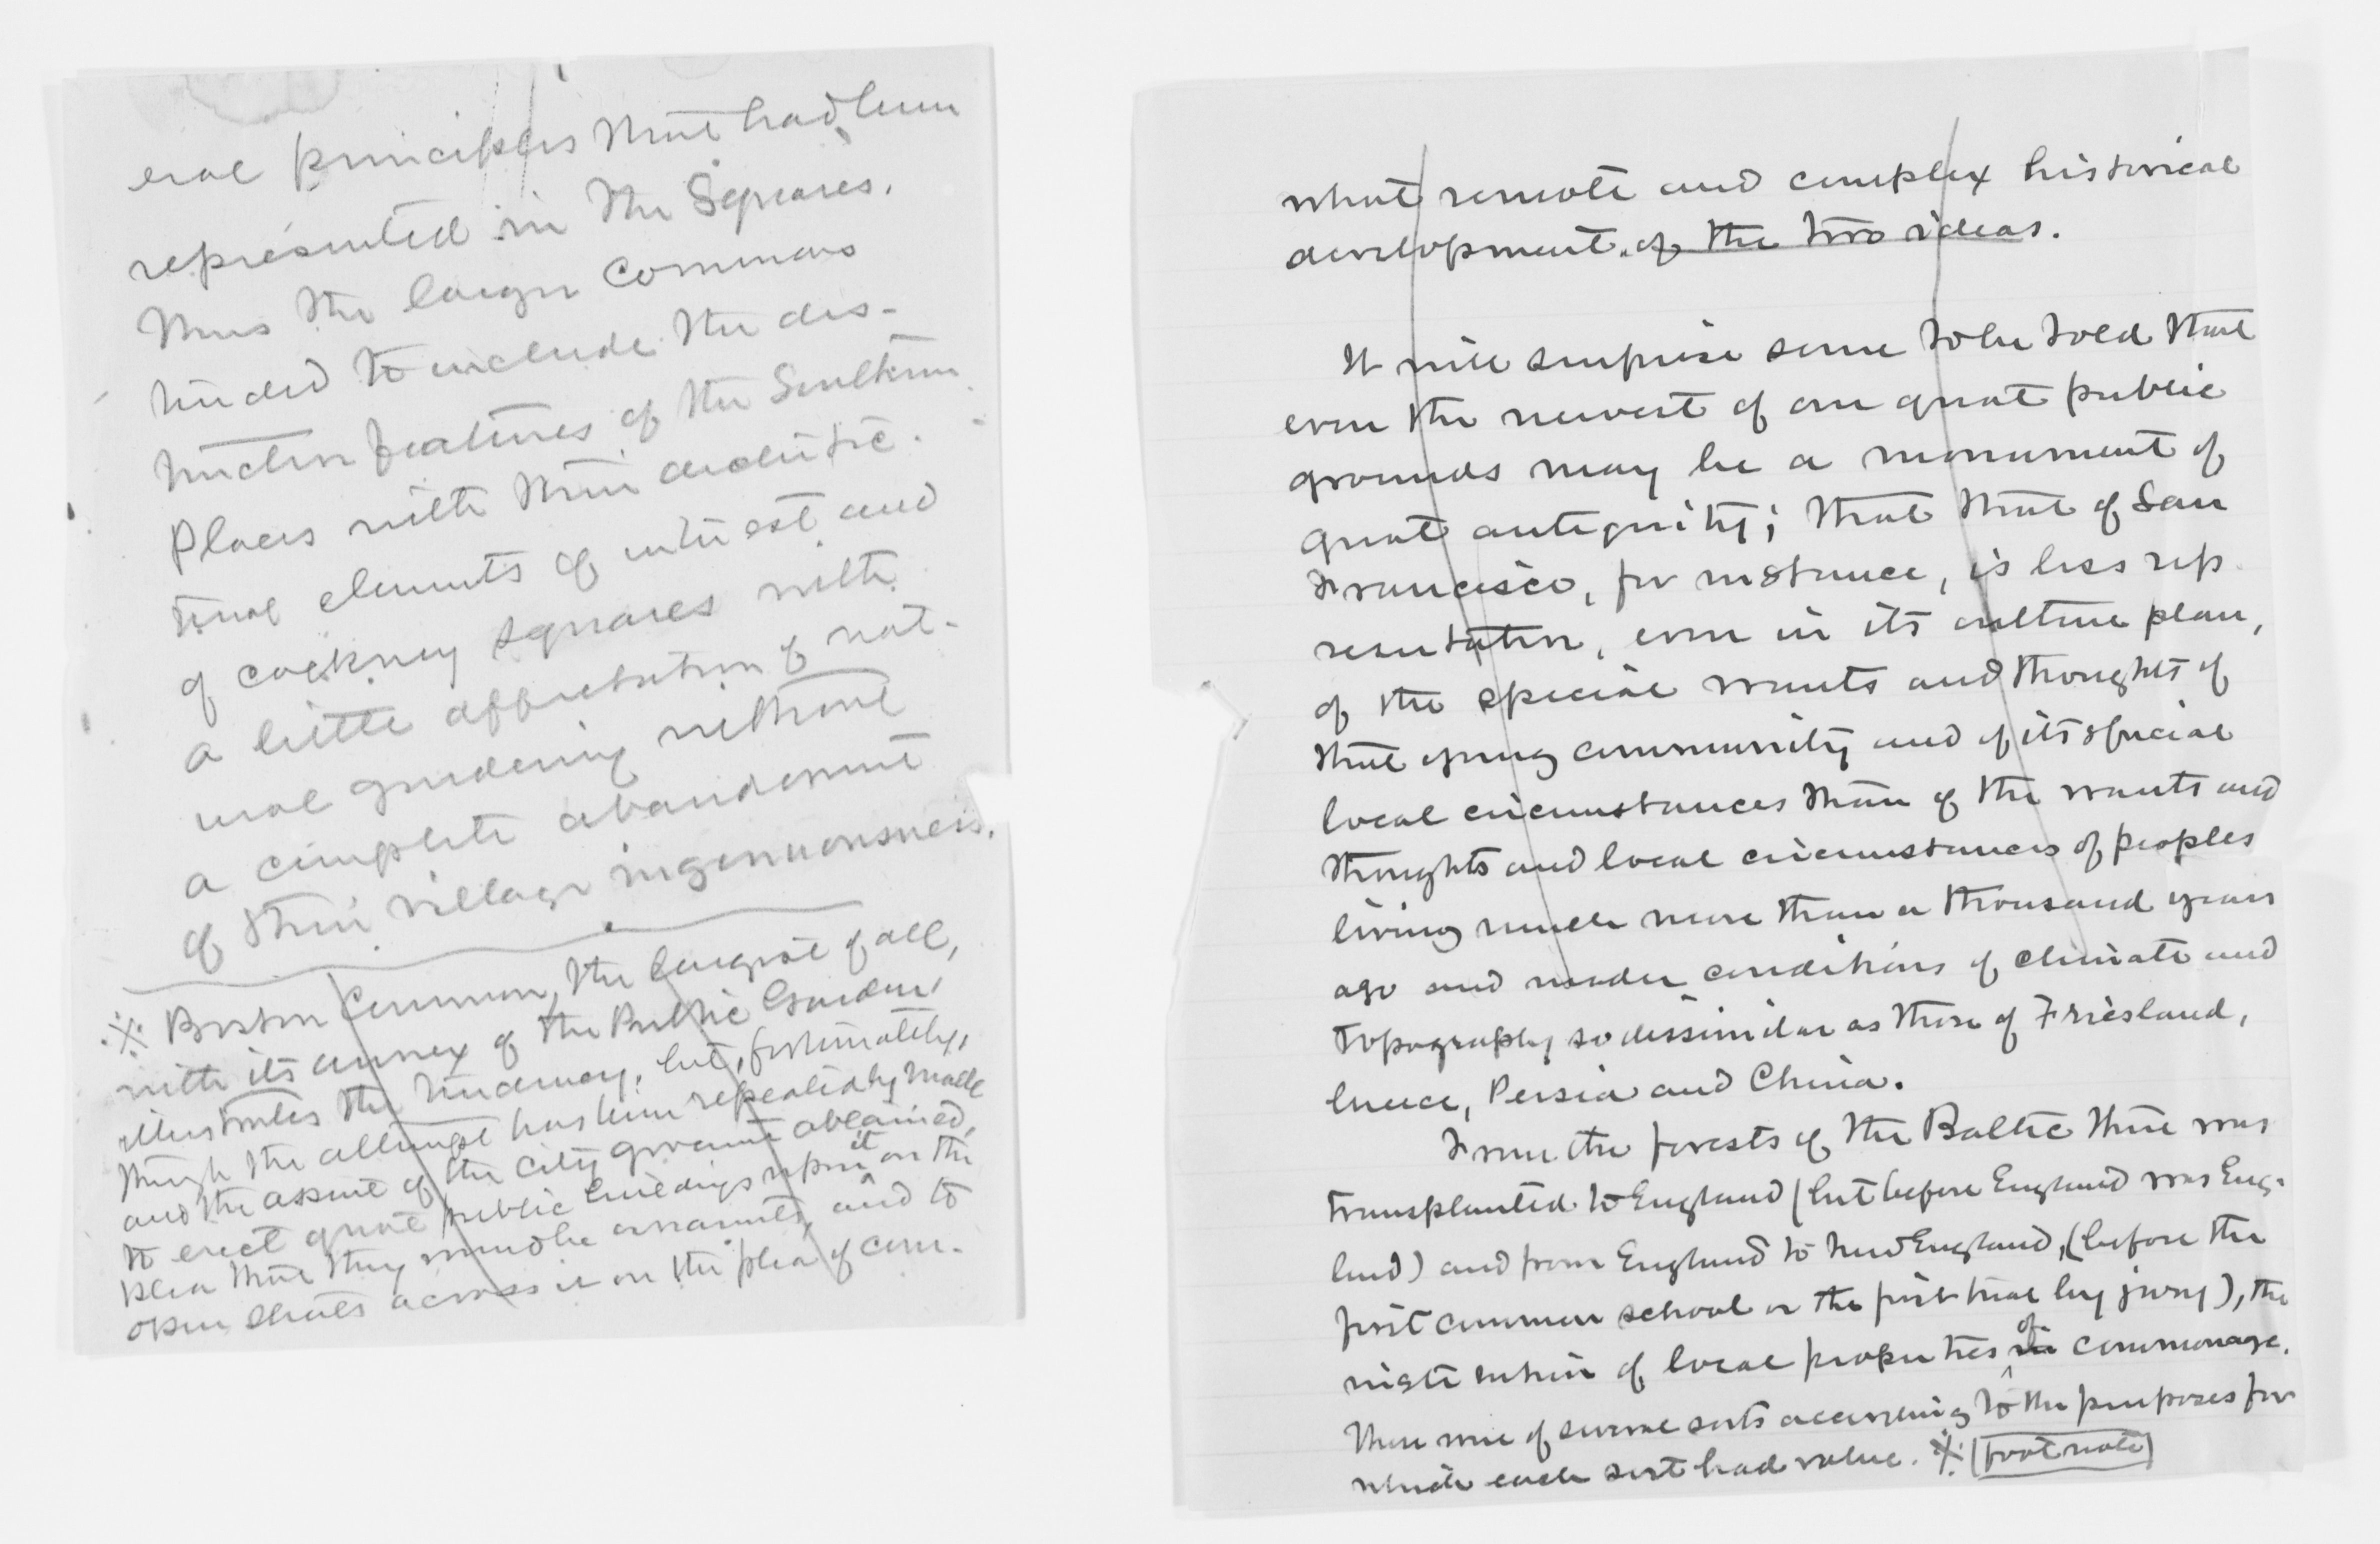 eral principles that had been
represented in the Squares.
Thus the larger Commons
tended to include the dis-
tinctive features of the Southern
Places with their architec-
tural elements of interest and
of cockney squares with
a little affectation of nat-
ural gardening without
a complete abandonment
of their village ingenuousness.
※ Boston Common, the largest of all,
with its annex of the Public Garden,
illustrates the tendency, but, fortunately,
though the attempt has been repeatedly made
and the assent of the City governmt obtained,
to erect great public buildings upon it on the
plea that they would be ornaments, and to
open streets across it on the plea of com-
what remote and complex historical
development of the two ideas.
It will surprise some to be told that
even the newest of our great public
grounds may be a monument of
great antiquity; that that of San
Francisco, for instance, is less rep
resentative, even in its outline plan,
of the special wants and thoughts of
that young community and of its special
local circumstances than of the wants and
thoughts and local circumstances of peoples
living much more than a thousand years
ago and under conditions of climate and
topography so dissimilar as those of Friesland,
Greece, Persia and China.
From the forests of the Baltic there was
transplanted to England (but before England was Eng-
land) and from England to New England, (before the
first common school or the first trial by jury), the
institution of local properties in of commonage.
These were of several sorts according to the purposes for
which each sort had value. ※ (foot note)